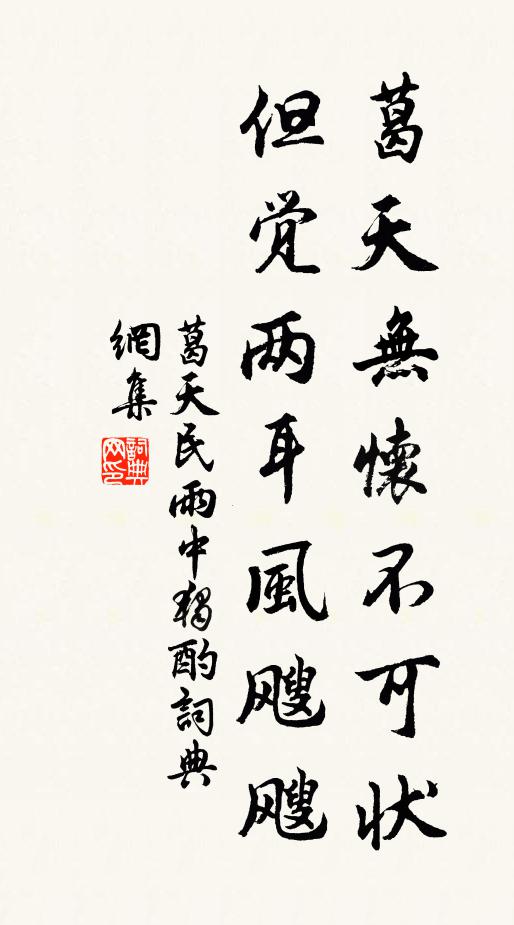 葛天無懷不可状
但覚两耳風颼颼
葛天民雨中獨酌詞典
網集
詞典
网印